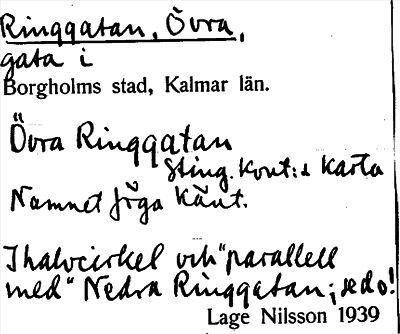 Ringgatan, Övra,
gata i
Borgholms stad, Kalmar län.
Övra Ringgatan
Sting. Kont:s Karta
Namnet föga känt.
I halvcirkel och "parallell
med" Nedra Ringgatan; se d.o!
Lage Nilsson 1939